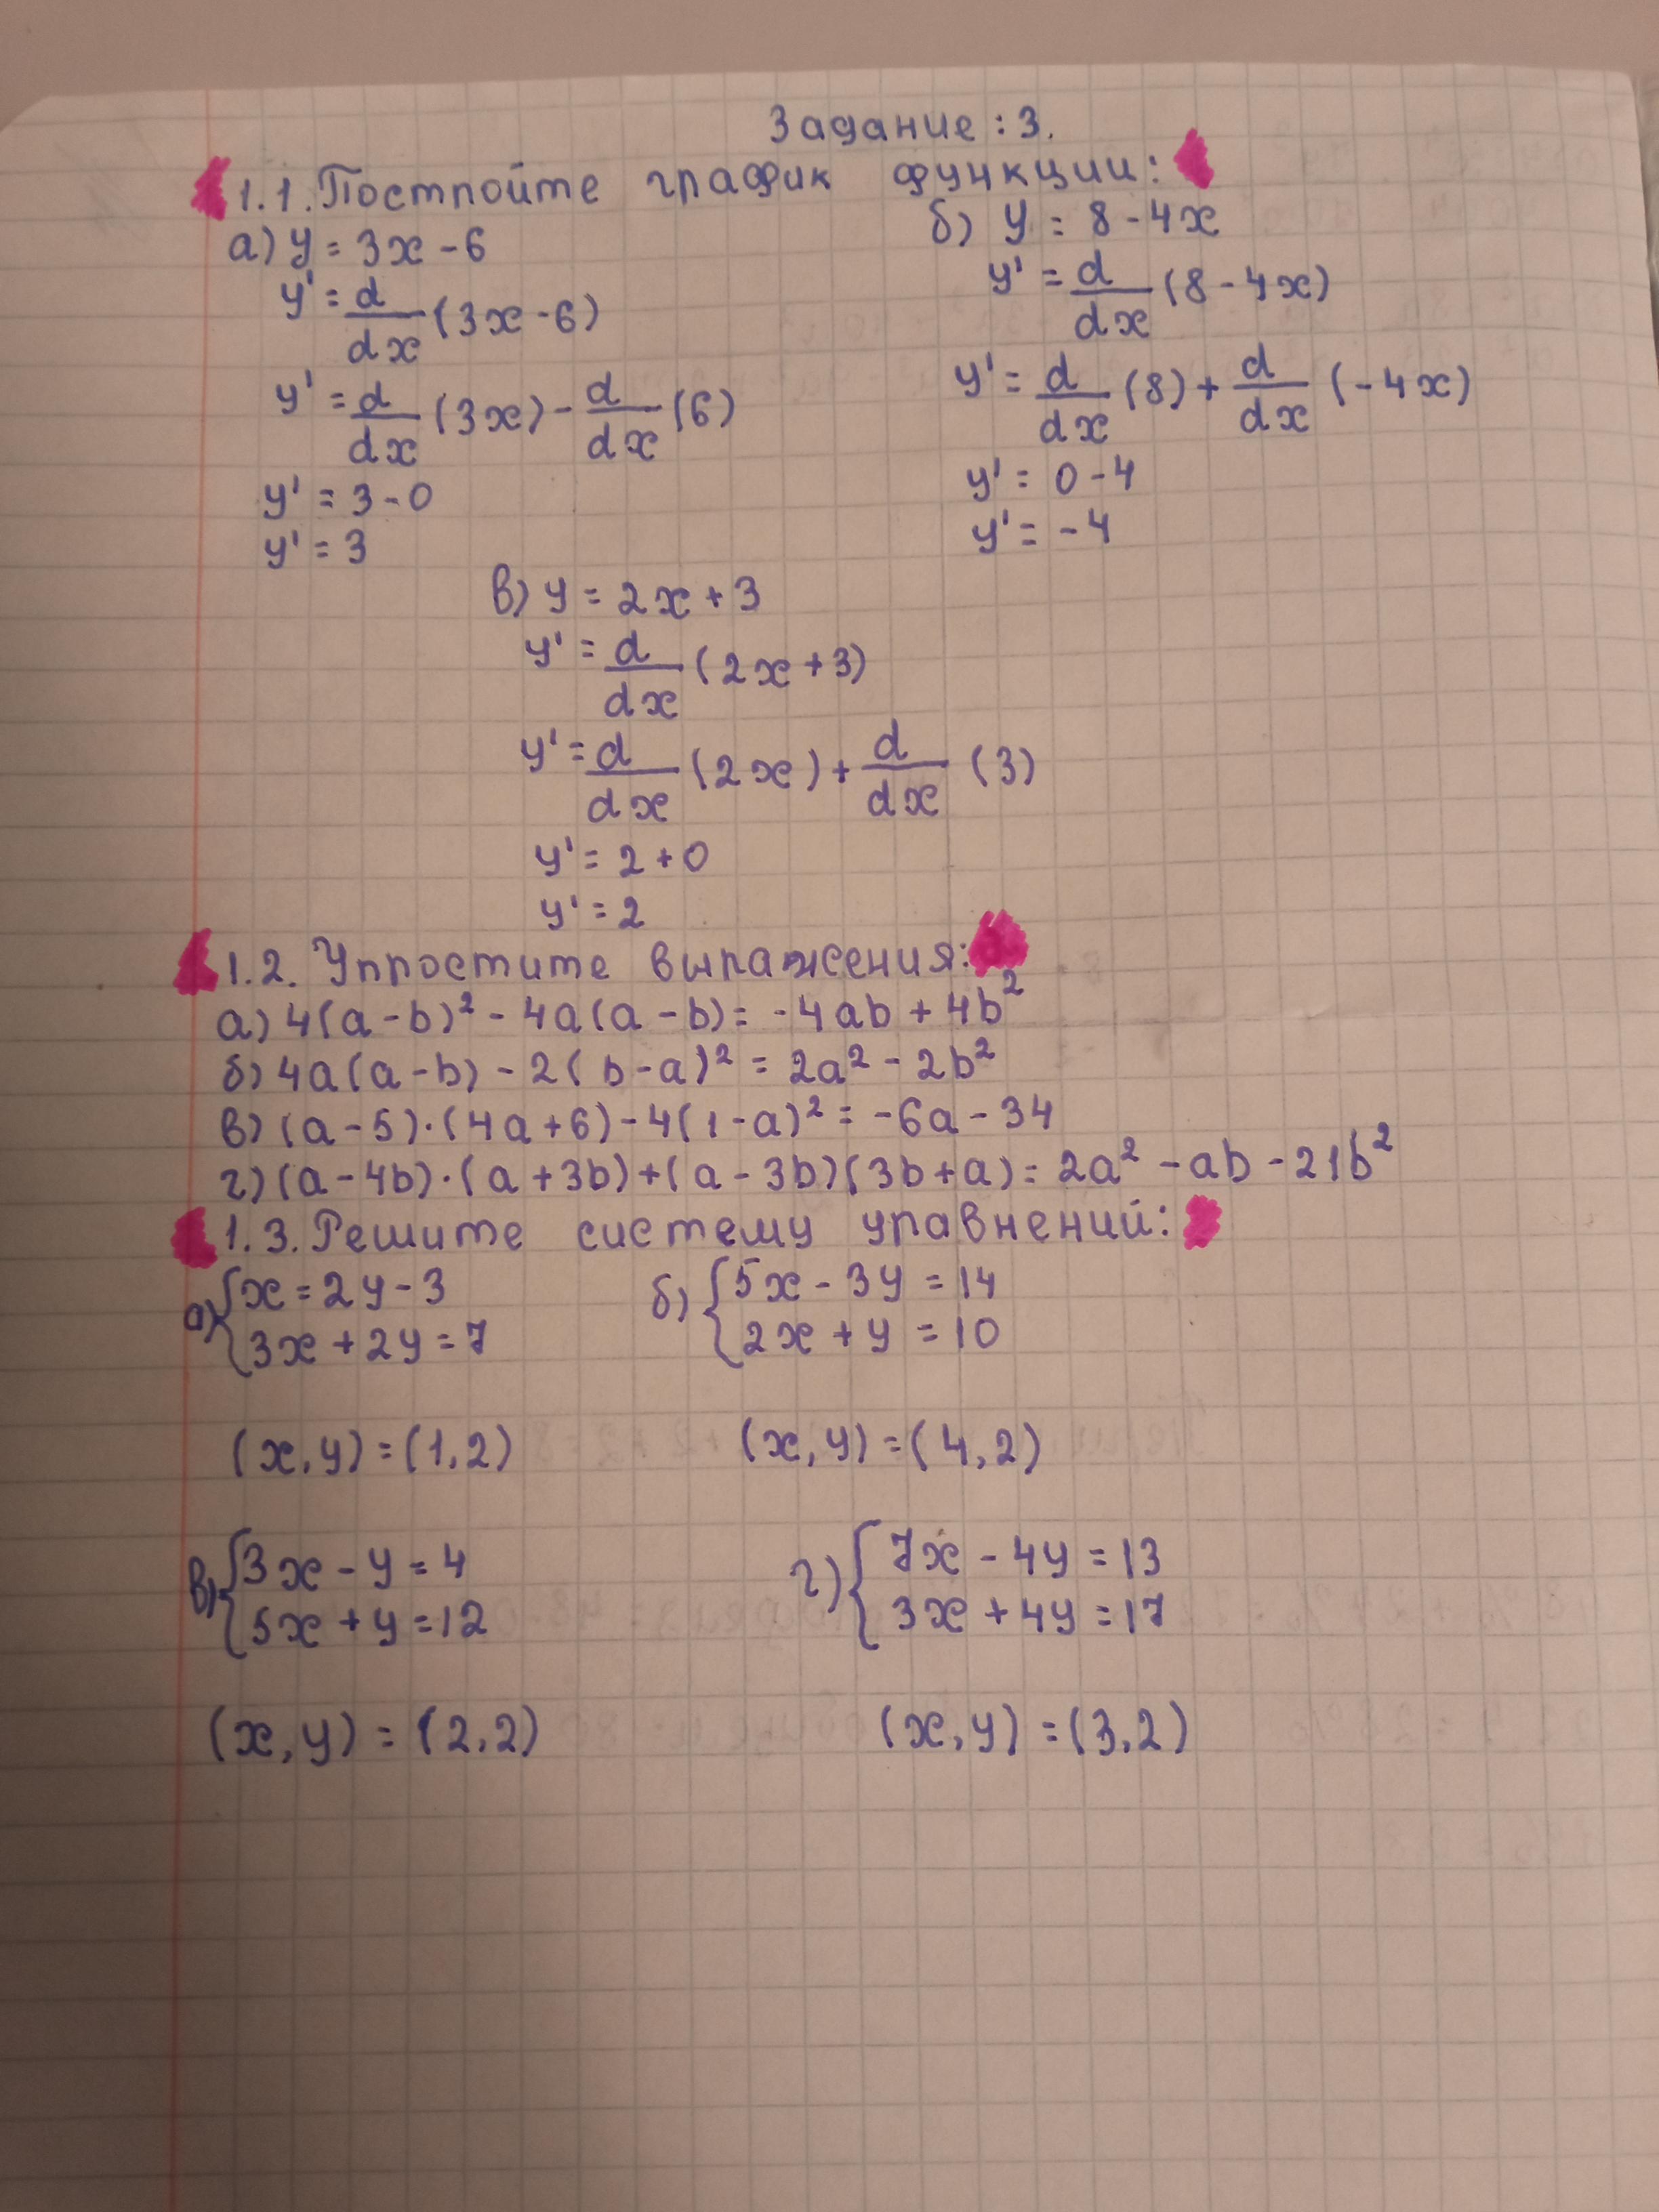 Задание: 3.
1.1. Постройте график функции:
а) y = 3x - 6
y' = d/dx (3x - 6)
y' = d/dx (3x) - d/dx (6)
y' = 3 - 0
y' = 3
б) y = 8 - 4x
y' = d/dx (8 - 4x)
y' = d/dx (8) + d/dx (-4x)
y' = 0 - 4
y' = -4
в) y = 2x + 3
y' = d/dx (2x + 3)
y' = d/dx (2x) + d/dx (3)
y' = 2 + 0
y' = 2
1.2. Упростите выражения:
а) 4(a - b)² - 4a(a - b) = -4ab + 4b²
б) 4a(a - b) - 2(b - a)² = 2a² - 2b²
в) (a - 5)·(4a + 6) - 4(1 - a)² = -6a - 34
г) (a - 4b)·(a + 3b) + (a - 3b)(3b + a) = 2a² - ab - 21b²
1.3. Решите систему уравнений:
а) { x = 2y - 3
3x + 2y = 7
(x, y) = (1, 2)
б) { 5x - 3y = 14
2x + y = 10
(x, y) = (4, 2)
в) { 3x - y = 4
5x + y = 12
(x, y) = (2, 2)
г) { 7x - 4y = 13
3x + 4y = 17
(x, y) = (3, 2)